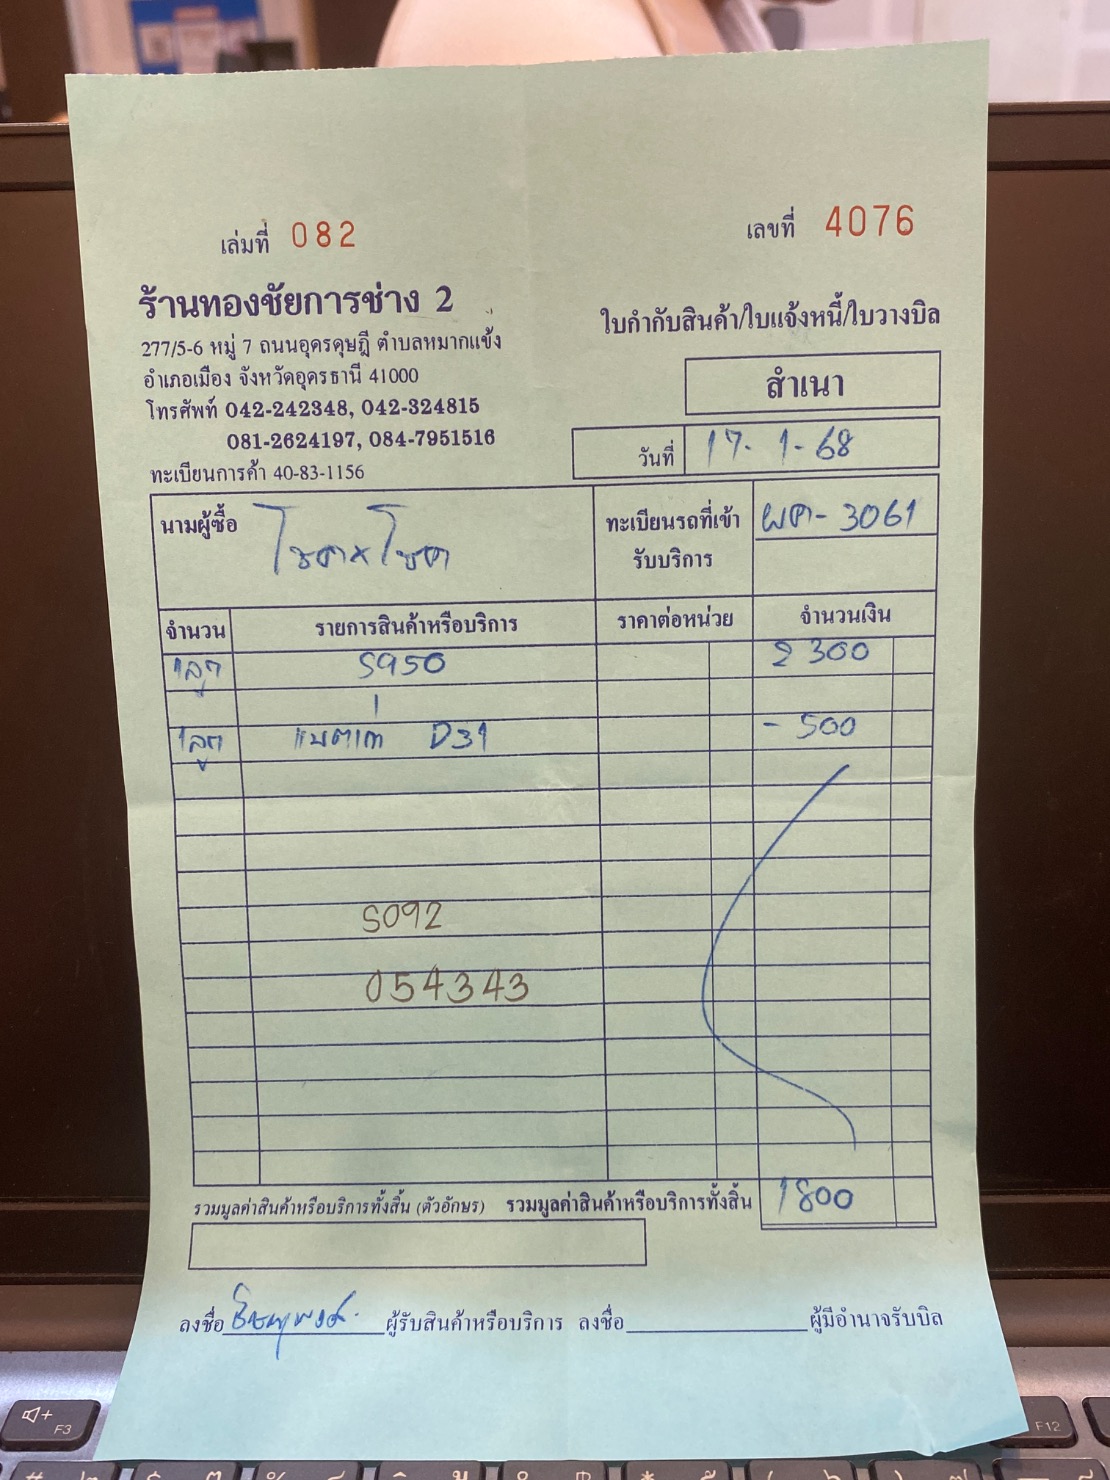 เล่มที่ 082
เลขที่ 4076
ร้านทองชัยการช่าง 2
277/5-6 หมู่ 7 ถนนอุดรดุษฎี ตำบลหมากแข้ง
อำเภอเมือง จังหวัดอุดรธานี 41000
โทรศัพท์ 042-242348, 042-324815
081-2624197, 084-7951516
ทะเบียนการค้า 40-83-1156
ใบกำกับสินค้า/ใบแจ้งหนี้/ใบวางบิล
สำเนา
วันที่ 17-1-68
นามผู้ซื้อ โชค x โชค
ทะเบียนรถที่เข้า ผค-3061
รับบริการ
จำนวน รายการสินค้าหรือบริการ ราคาต่อหน่วย จำนวนเงิน
1ลูก S950 2300
1ลูก แบตเก่า D31 -500
S092
054343
รวมมูลค่าสินค้าหรือบริการทั้งสิ้น (ตัวอักษร) รวมมูลค่าสินค้าหรือบริการทั้งสิ้น 1800
ลงชื่อ ผู้รับสินค้าหรือบริการ ลงชื่อ ผู้มีอำนาจรับบิล
F3
F12